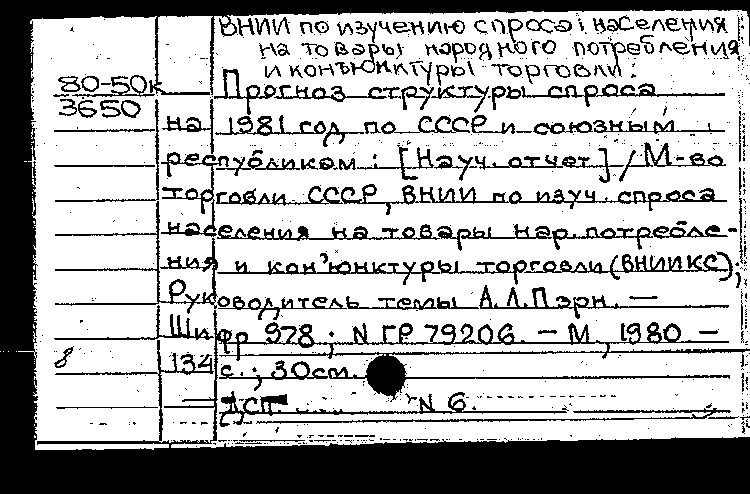 ВНИИ по изучению спроса населения
на товары народного потребления
и конъюнктуры торговли.
80-50к Прогноз структуры спроса
3650
на 1981 год по СССР и союзным
республикам: [Науч. отчет] / М-во
торговли СССР, ВНИИ по изуч. спроса
населения на товары нар. потребле-
ния и кон'юнктуры торговли (ВНИИКС);
Руководитель темы А.Л.Пэрн. —
Шифр 978; N ГР 79206. — М., 1980 —
8 134 с.; 30см.
— ДСП N 6.